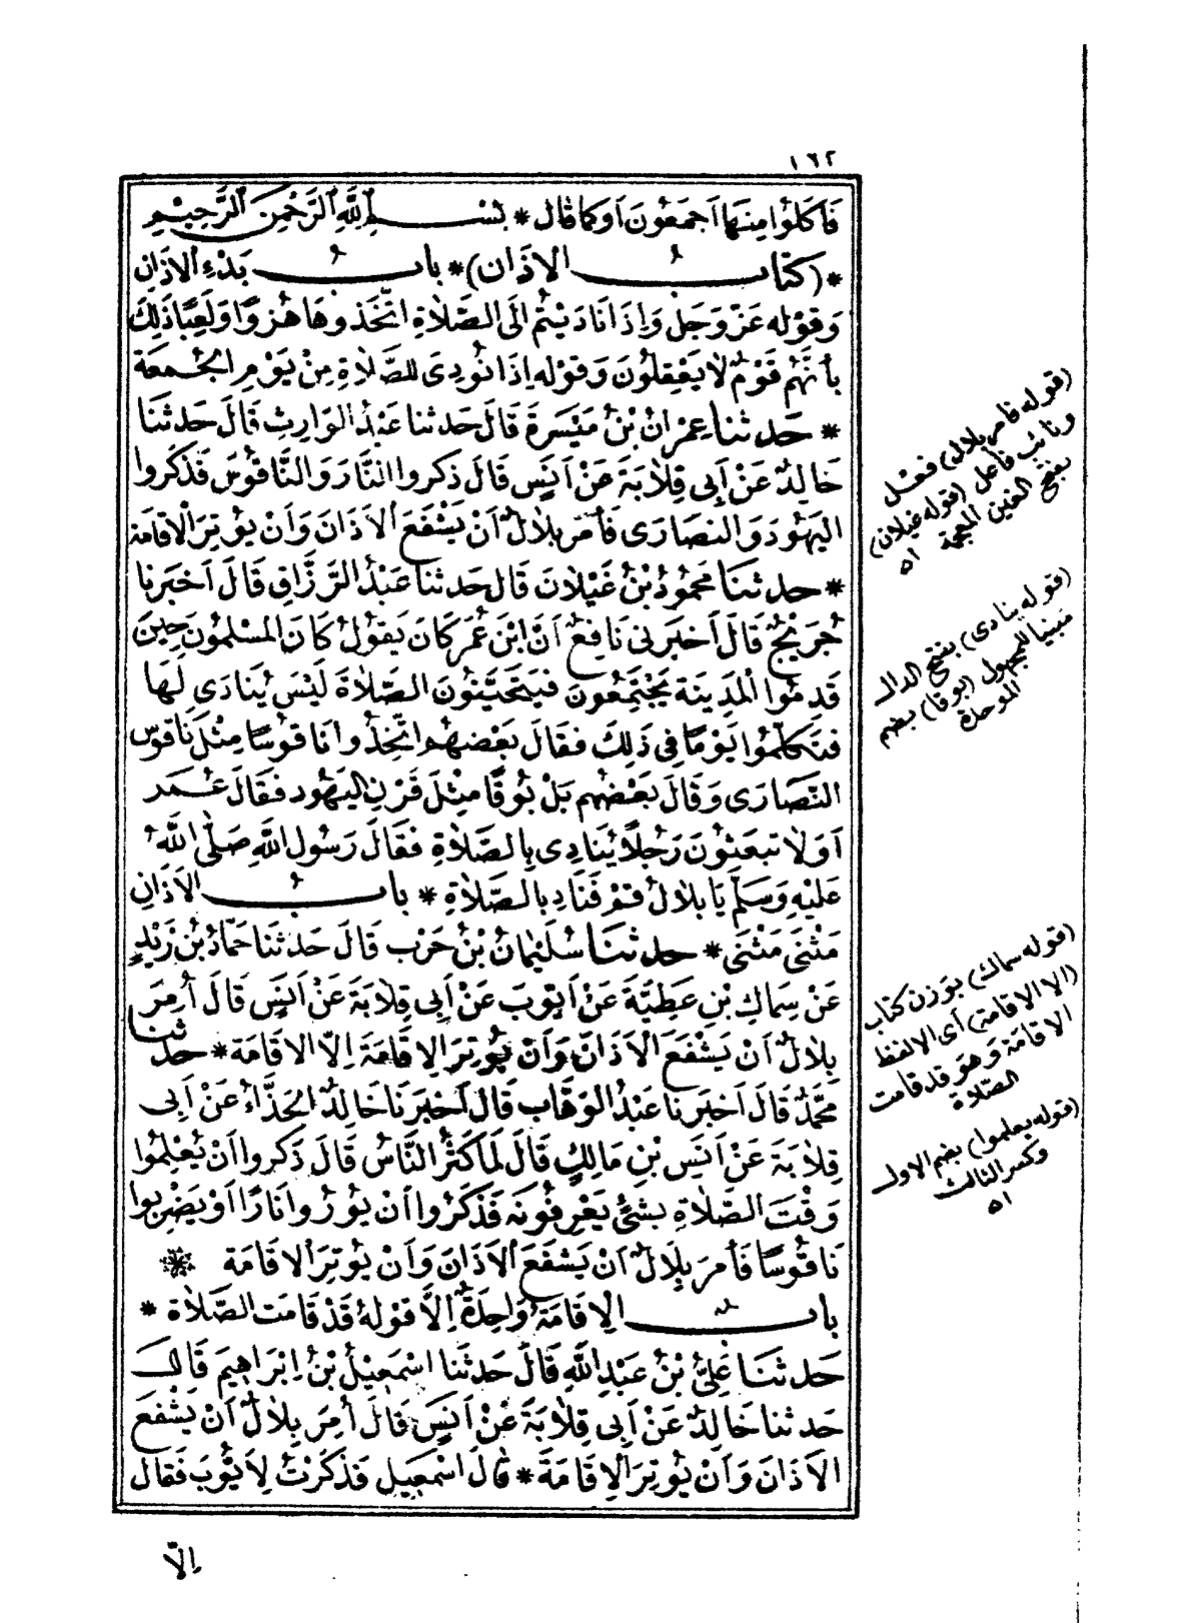 ١٦٢
فَأَكَلُوا مِنْهَا أَجْمَعُونَ أَوْ كَمَا قَالَ * بِسْمِ اللَّهِ الرَّحْمٰنِ الرَّحِيمِ
* (كتابُ الأذان) * بابُ بَدْءِ الأَذَانِ
وَقَوْلِهِ عَزَّ وَجَلَّ وَإِذَا نَادَيْتُمْ إِلَى الصَّلَاةِ اتَّخَذُوهَا هُزُوًا وَلَعِبًا ذَلِكَ
بِأَنَّهُمْ قَوْمٌ لَا يَعْقِلُونَ وَقَوْلِهِ إِذَا نُودِيَ لِلصَّلَاةِ مِنْ يَوْمِ الْجُمُعَةِ
* حدثنا عِمْرَانُ بْنُ مَيْسَرَةَ قَالَ حَدثنا عَبْدُ الوَارِثِ قَالَ حَدثنَا
خَالِدٌ عَنْ أَبِي قِلَابَةَ عَنْ أَنَسٍ قَالَ ذَكَروا النَّارَ وَالنَّاقُوسَ فَذَكَرُوا
اليَهُودَ وَالنصَارَى فَأُمِرَ بِلَالٌ أَنْ يَشْفَعَ الأَذَانَ وَأَنْ يُوتِرَ الْإِقَامَةَ
* حدثنَا مَحْمُودُ بْنُ غَيْلَانَ قَالَ حَدثنا عَبْدُ الرَّزَّاقِ قَالَ أَخبَرنا
جُرَيْجٌ قَالَ أَخبَرَنِي نَافِعٌ أَنَّ ابْنَ عُمَرَ كَانَ يَقُولُ كَانَ المُسْلِمُونَ حِينَ
قَدِمُوا الْمَدِينَةَ يَجْتَمِعُونَ فَيَتَحَيَّنُونَ الصَّلَاةَ لَيْسَ يُنَادَى لَهَا
فتَكَلَّمُوا يَوْمًا فِي ذَلِكَ فقَالَ بَعْضُهُمُ اتَّخِذُوا نَاقُوسًا مِثْلَ نَاقُوسِ
النَّصَارَى وَقَالَ بَعْضُهُم بَلْ بُوقًا مِثْلَ قَرْنِ اليَهُودِ فَقَالَ عُمَر
أَوَلَا تَبعَثُونَ رَجُلًا يُنَادِي بِالصَّلَاةِ فقَالَ رَسُولُ اللَّهِ صَلَّى اللَّهُ
عَلَيْهِ وَسَلَّمَ يَا بِلَالُ قُمْ فَنَادِ بِالصَّلَاةِ * بابُ الأَذَانِ
مَثْنَى مَثْنَى * حدثنَا سُلَيْمَانُ بْنُ حَرْب قَالَ حَدثنَا حَمَّادُ بْنُ زَيْدٍ
عَنْ سِمَاكِ بْنِ عَطِيَّةَ عَنْ أَيُّوبَ عَنْ أَبِي قِلَابَةَ عَنْ أَنَسٍ قَالَ أُمِرَ
بِلَالٌ أَنْ يَشْفَعَ الْأَذَانَ وَأَنْ يُوتِرَ الإِقَامَةَ إِلَّا الإِقَامَةَ * حَدثنا
مُحَمَّدٌ قَالَ أَخبَرَنا عَبْدُ الوَهَّاب قَالَ أَخبَرَنَا خَالِدٌ الحَذَّاءُ عَنْ أَبِي
قِلَابَةَ عَنْ أَنَسِ بْنِ مَالِكٍ قَالَ لَمَّا كَثُرَ النَّاسُ قَالَ ذَكَروا أَنْ يُعْلِمُوا
وَقْتَ الصَّلَاةِ بِشَيْءٍ يَعْرِفُونَهُ فَذَكَرُوا أَنْ يُورُوا نَارًا أَوْ يَضْرِبُوا
نَاقُوسًا فَأُمِرَ بِلَالٌ أَنْ يَشْفَعَ الأَذَانَ وَأَنْ يُوتِرَ الإِقَامَةَ
بابٌ الإِقَامَةُ وَاحِدَةٌ إِلَّا قَوْلَهُ قَدْ قَامَت الصَّلَاة *
حَدثنَا عَلِيُّ بْنُ عَبْدِ اللَّهِ قَالَ حَدثَنا إِسْمَعِيلُ بْنُ إِبْرَاهِيمَ قَالَ
حَدثنا خَالِدٌ عَنْ أَبِي قِلَابَةَ عَنْ أَنَسٍ قَالَ أُمِرَ بِلَالٌ أَنْ يَشْفَعَ
الأَذَانَ وَأَنْ يُوتِرَ الْإِقَامَةَ * قَالَ إِسْمَعِيل فَذَكَرْتُ لِأَيُّوبَ فَقَال
إِلَّا
(قوله فامر بلال) فعل
ونائب فاعل (قوله غيلان)
بفتح الغين المعجمة
اه
(قوله ينادى) بفتح الدال
مبنيا للمجهول (بوقا) بضم
الموحدة
(قوله سماك) بوزن كتاب
(الا الاقامة) أى الا لفظ
الاقامة وهو قد قامت
الصلاة
(قوله يعلموا) بضم الاول
وكسر الثالث
اه